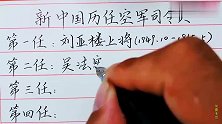 新中国历任空军司令
第一任：刘亚楼上将(1949.10-1965.5)
第二任：吴法
第三任：
第四任：